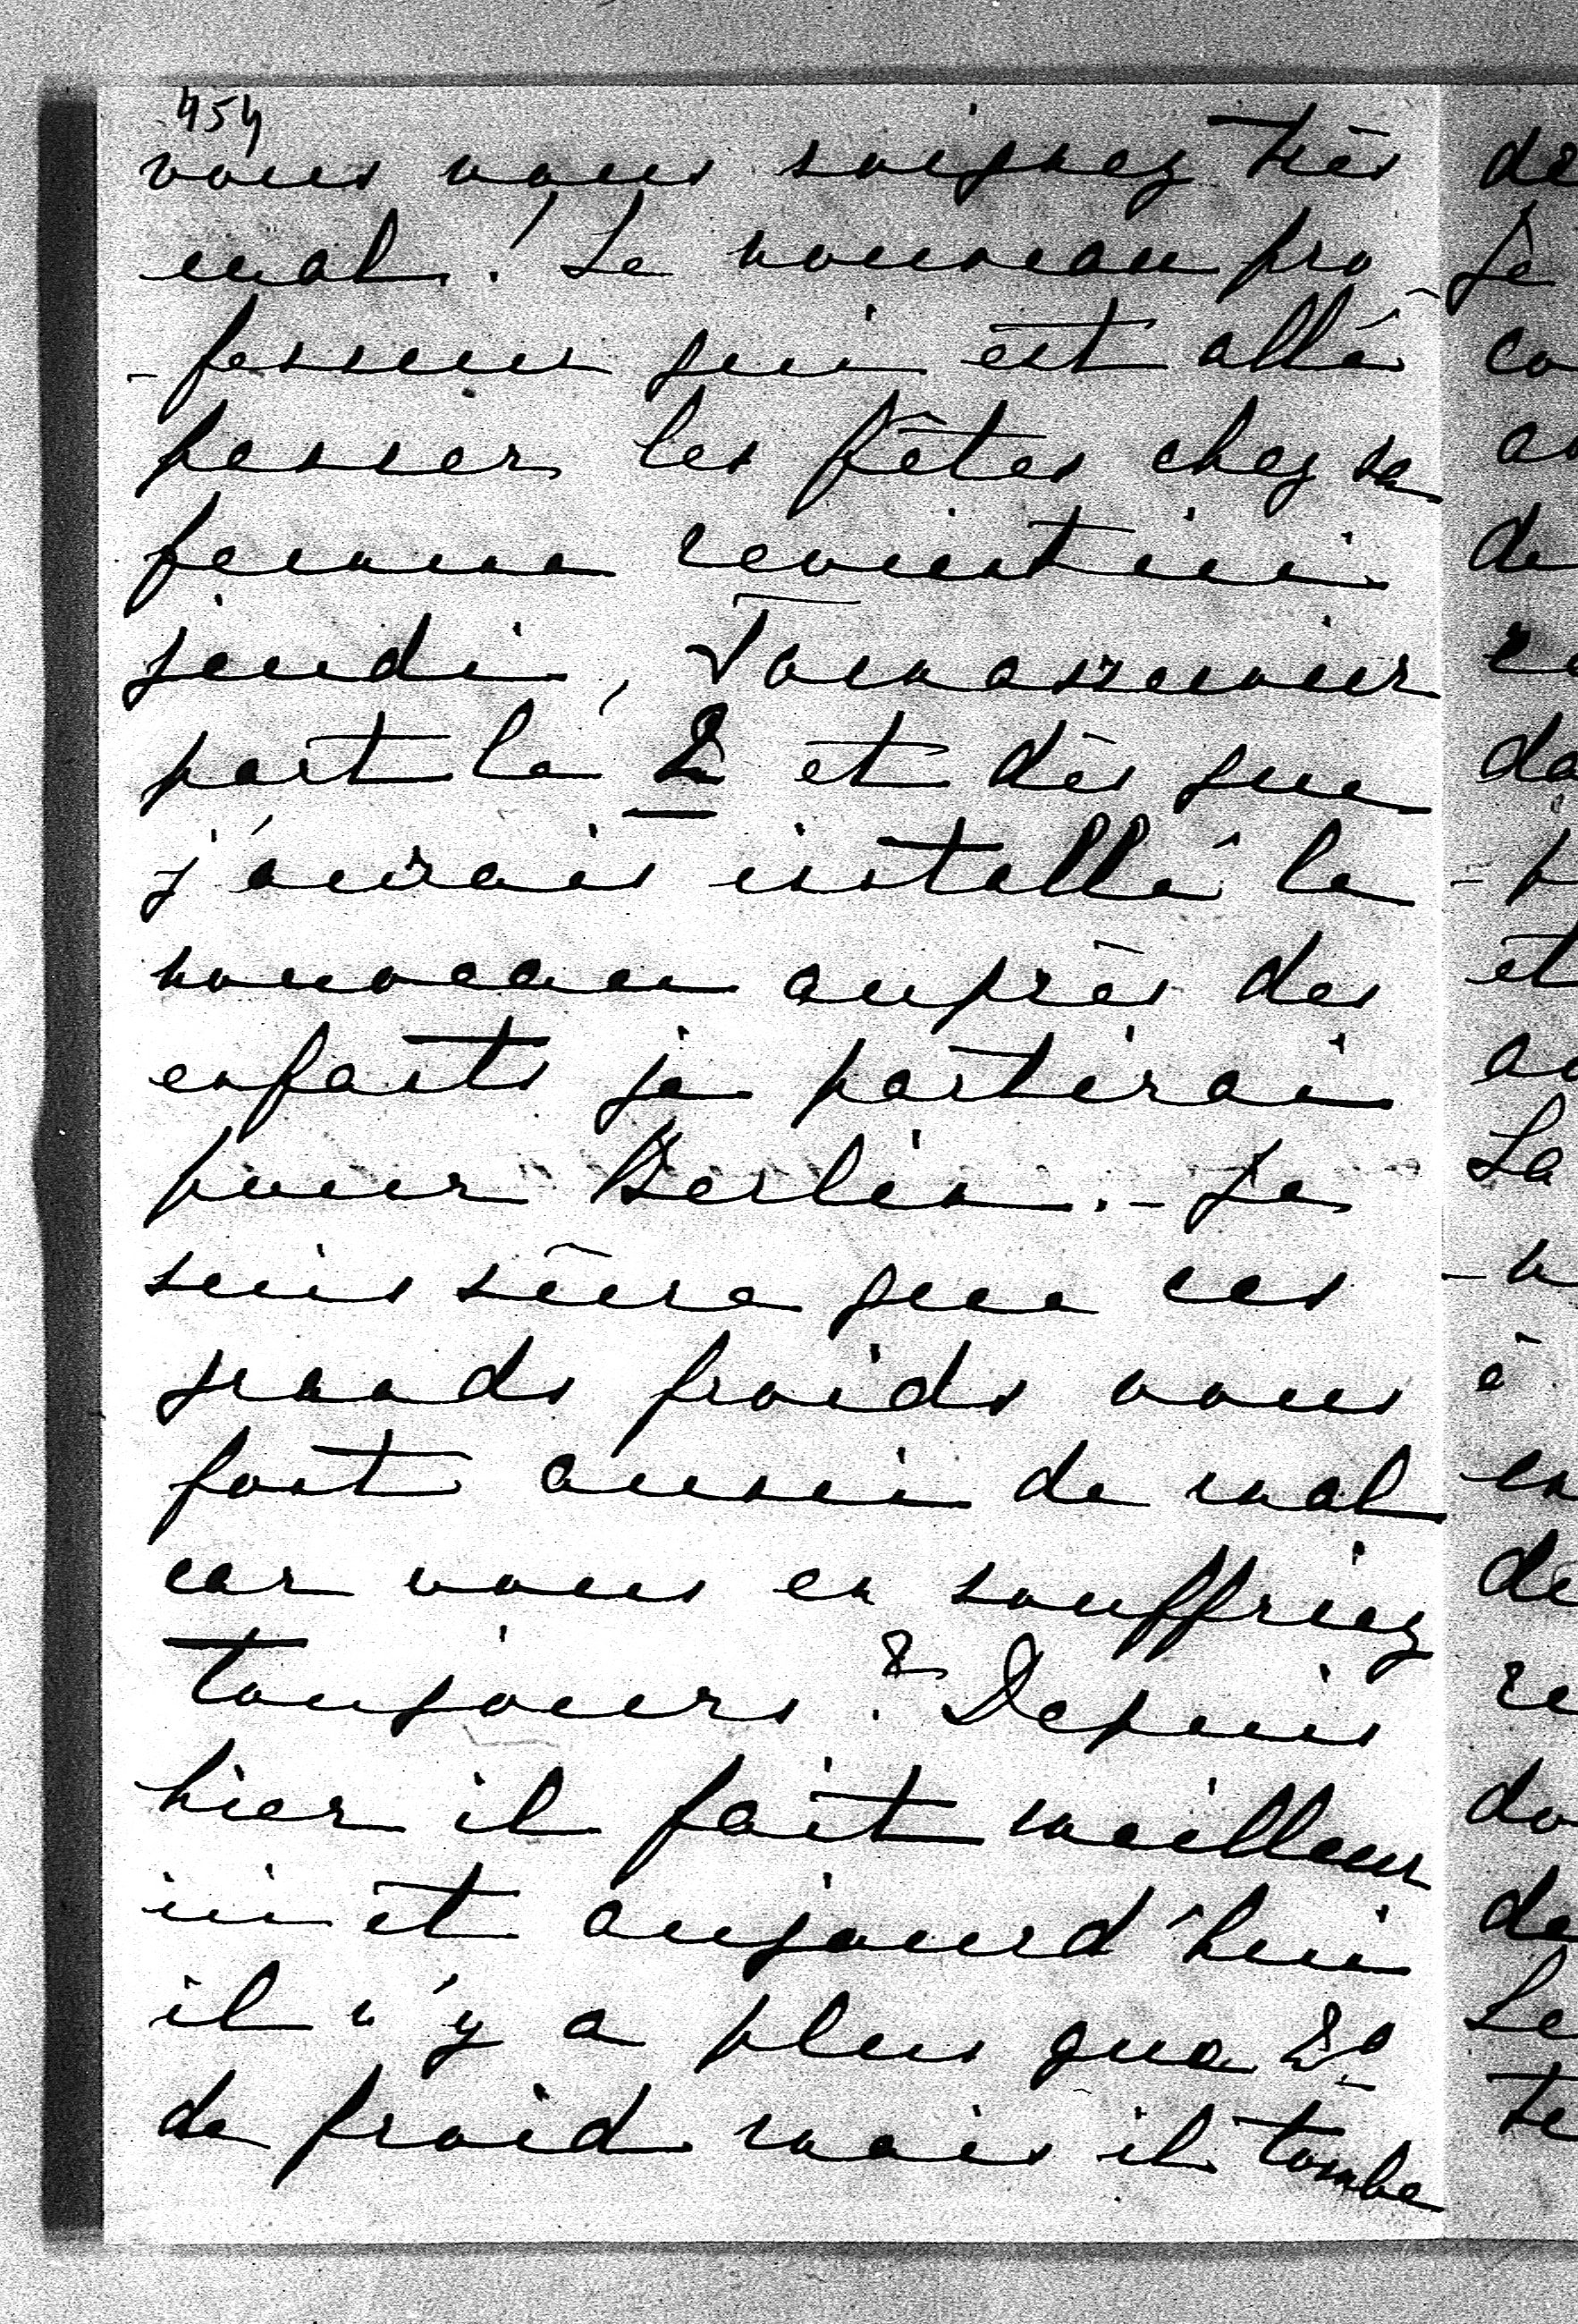 454
vous vous soignez très
mal! Le nouveau pro
-fesseur qui est allé
passer les fêtes chez sa
femme revient ici
jeudi,
part le 2 et dès que
j'aurais installé le
nouveau auprès des
enfants je partirai
pour Berlin. - Je
suis sûre que ces
grands froids vous
font aussi de mal
car vous en souffriez
toujours? Depuis
hier il fait meilleur
ici et aujourd'hui
il n'y a plus que 2°
de froid mais il tombe